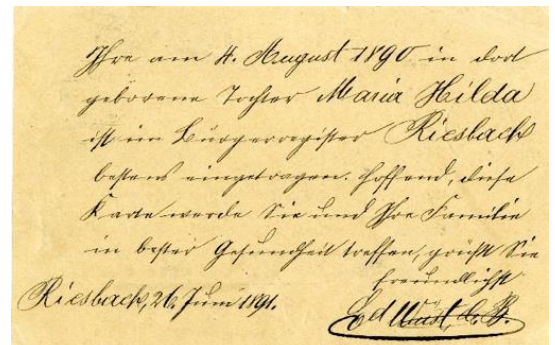 Ihre am 4. August 1890 in dort
geborene Tochter Maria Hilda
ist im Bürgerregister Riesbach
bestens eingetragen. Hoffend, diese
Karte werde Sie und Ihre Familie
in bester Gesundheit treffen, grüßt Sie
freundlichst
Riesbach, 26. Juni 1891.
Ed Wüst,